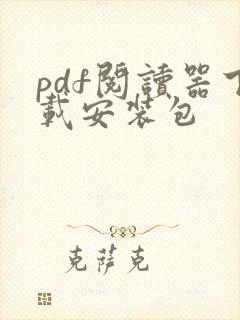 pdf閱讀器下
載安裝包
克薩克